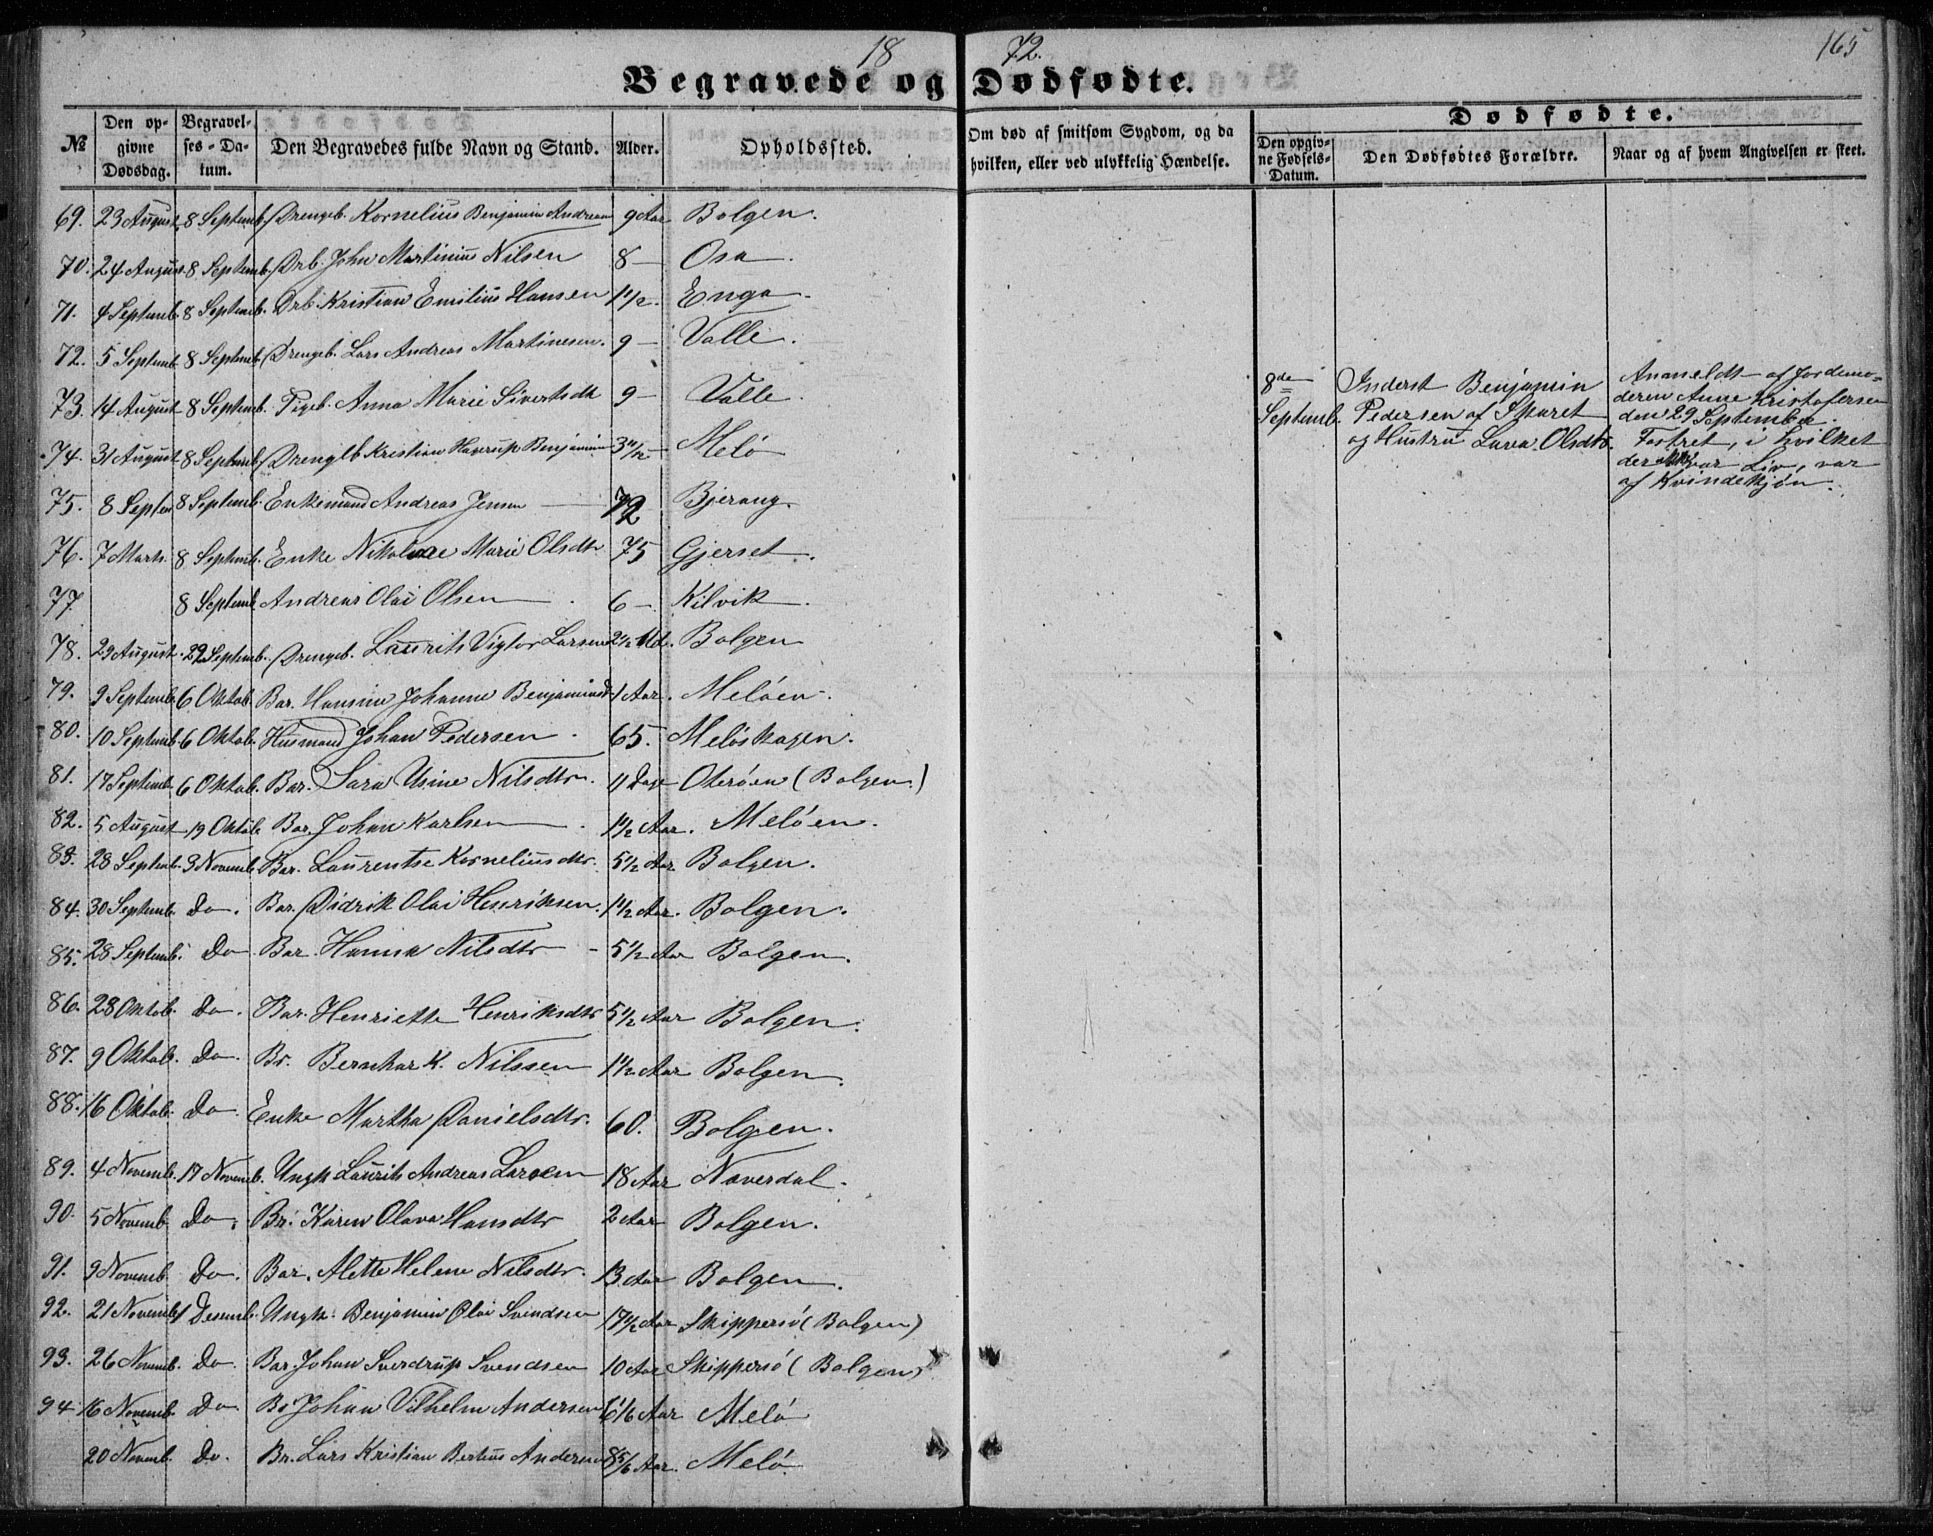 18 72. 165
Begravede og Dødfødte.
№
Den opgivne Dødsdag.
Begravelses-Datum.
Den Begravedes fulde Navn og Stand.
Alder.
Opholdssted.
Om død af smitsom Sygdom, og da hvilken, eller ved ulykkelig Hændelse.
Dødfødte.
Den opgivne Fødsels-Datum.
Den Dødfødtes Forældre.
Naar og af hvem Angivelsen er skeet.
69. 23 August 8 Septemb. Drengeb. Kornelius Benjamin Andreas 9 Aar Bolgen.
70. 24 August 8 Septemb. Drb. John Martinius Nilsen 8 — Osa.
71. 4 Septemb. 8 Septemb. Drb. Kristian Emilius Hansen 1 1/2 Enga.
72. 5 Septemb. 8 Septemb. Drengeb. Lars Andreas Martinesen. 9 — Valle.
73. 14 August 8 Septemb. Pigeb. Anna Marie Sivertsdtr 9 — Valle.
74. 31 August 8 Septemb. Drengb Kristian Benjamin 3 1/2 — Melø
75. 8 Septem 8 Septemb. Enkemand Andreas Jensen — 72 Bjerang.
76. 7 Marts. 8 Septemb. Enke Nikoline Marie Olsdtr 75 Gjerset.
77 8 Septemb. Andreas Olai Olsen 6 — Kilvik.
78. 29 August. 29 Septemb. Drengeb. Laurits Vigtor Larsen 2 1/2 Md. Bolgen
79. 9 Septemb. 6 Oktob. Bar. Hansine Johanne Benjaminsd 1 Aar. Meløen.
80. 10 Septemb. 6 Oktob. Husmand Johan Pedersen. 65. Meløskagen.
81. 17 Septemb. 6 Oktob. Bar. Sara Usine Nilsdtr. 11 Dage Oterøen (Bolgen.)
82. 5 August 19 Oktob. Bar. Johan Karlsen. 1 1/2 Aar. Meløen.
83. 28 Septemb. 3 Novemb. Bar. Laurentse Korneliusdtr. 5 1/2 Aar Bolgen.
84. 30 Septemb. Do. Bar. Didrik Olai Henriksen. 1 1/2 Aar. Bolgen.
85. 28 Septemb. Do Bar. Hanna Nilsdtr — 5 1/2 Aar Bolgen.
86. 28 Oktob. Do. Bar. Henriette Henriksdtr 5 1/2 Aar Bolgen.
87. 9 Oktob. Do. Br. Bernhar K. Nilssen 1 1/2 Aar Bolgen.
88. 16 Oktob. Do. Enke Martha Danielsdtr. 60. Bolgen.
89. 4 Novemb. 17 Novemb. Ungk. Laurits Andreas Larsen 18 Aar Naverdal.
90. 5 Novemb. Do. Br. Karen Olava Hansdtr 2 Aar Bolgen.
91. 9 Novemb. Do. Bar. Alette Helene Nilsdtr. 13 Aar Bolgen.
92. 21 Novemb. 1 Desemb. Ungk. Benjamin Olai Svendsen 17 1/2 Aar Skippersø (Bolgen)
93. 26 Novemb. Do. Bar. Johan Sverdrup Svendsen 10 Aar Skippersø (Bolgen)
94 16 Novemb. Do Br Johan Vilhelm Andersen 6 1/6 Aar Melø
20 Novemb. Do. Br. Lars Kristian Bertius Andersen 8 5/6 Aar. Melø.
8de Septemb.
Inderst Benjamin
Pedersen af Skaret
og Hustru Lava Olsdtr.
Anmeldt af Jordemo-
deren Anne Kristofersen
den 29 September.
Fostret, i hvilket
der ikke var Liv, var
af Kvindekjøn.